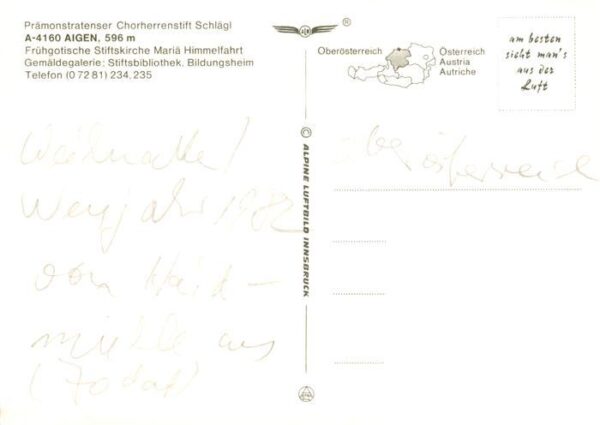 Prämonstratenser Chorherrenstift Schlägl
A-4160 AIGEN, 596 m
Frühgotische Stiftskirche Mariä Himmelfahrt
Gemäldegalerie; Stiftsbibliothek. Bildungsheim
Telefon (0 72 81) 234, 235
®
Oberösterreich
Österreich
Austria
Autriche
am besten
sieht man's
aus der
Luft
ALPINE LUFTBILD INNSBRUCK
Weihnachten/
Neujahr 1982
von Haid-
mühle aus
Oberösterreich